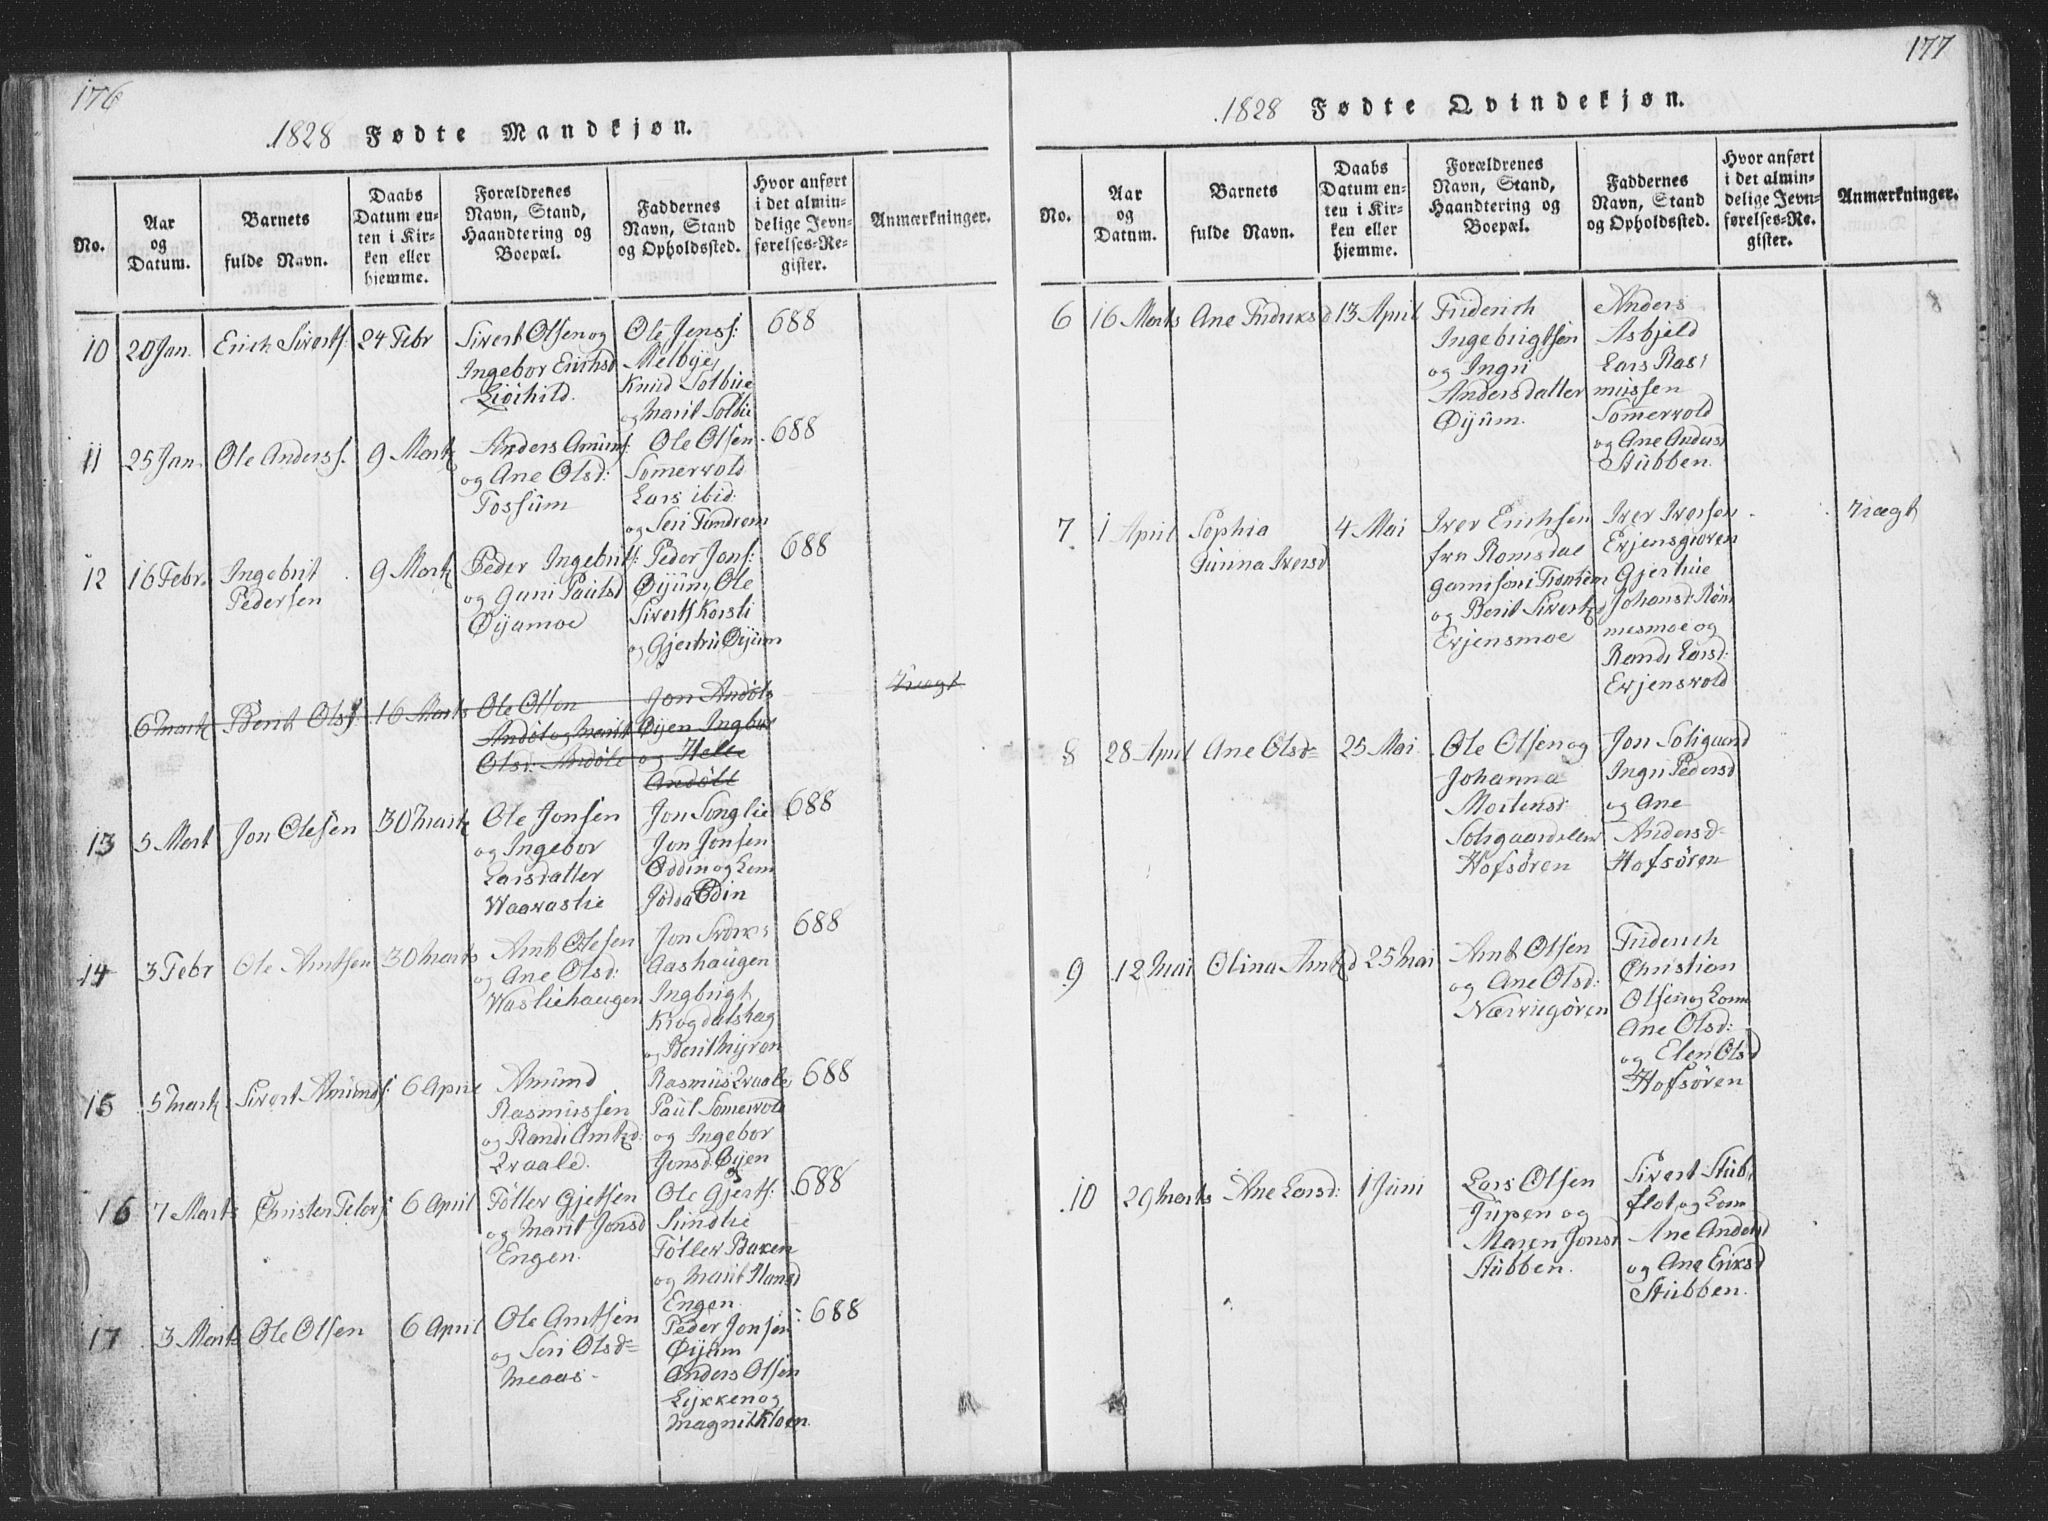 176
1828 Fødte Mandkjøn.
No.
Aar
og
Datum.
Barnets
fulde Navn.
Daabs
Datum en-
ten i Kir-
ken eller
hjemme.
Forældrenes
Navn, Stand,
Haandtering og
Boepæl.
Faddernes
Navn, Stand
og Opholdssted.
Hvor anført
i det almin-
delige Jevn-
førelses-Re-
gister.
Anmærkninger.
10
20 Jan.
Erich Sivertf:
24 Febr
Sivert Olsen og
Ingebor Erichsd
Liøihild.
Ole Jensf:
Melbye,
Knud Solbue
og Marit Solbu
688
11
25 Jan.
Ole Andersf.
9 Mart
Anders Amunf:
og Ane Olsd:
Fossum
Ole Olsen
Somervold
Lars ibid:
og Seri
688
12
16 Febr.
Ingebrit
Pedersen
9 Mart
Peder Ingebritf:
og Guni Paulsd
Øijamoe
Peder Jonsf:
Øijum, Ole
Sivertf Korsli
og Gjertru Øijum
688
6 Mart
Berit Olsf
16 Marts
Ole Olsen
Andøl og Marit
Olsd: Andøle
Jon Andøls
Øijen Ingbor
og Helle
Andøll
13
5 Mart
Jon Olesen
30 Mart
Ole Jonsen
og Ingebor
Larsdatter
Waavaslie
Jon Songlie
Jon Jonsen
Oddin og
688
14
3 Febr
Ole Arntsen
30 Marts
Arnt Olesen
og Ane Olsd:
Wasliehaugen
Jon
Aashaugen
Ingbrigt
Krogdalshag
og Berit Myran
688
15
5 Mart
Sivert Amundf:
6 April
Amund
Rasmussen
og Randi Arntzd:
Qvaale.
Rasmus Qvaale
Paul Somervold
og Ingebor
Jonsd: Øijen
688
16
7 Marts
Christen
6 April
Tøller Gjetsen
og Marit Jonsd
Engen.
Ole Gjertf:
Sundlie
Tøller Baken
og Marit Hansd
Engen.
688
17
3 Marts
Ole Olsen
6 April
Ole Arntsen
og Seri Olsd=
Meaas.
Peder Jonsen
Øijum
Anders Olsen
Lykken og
Magnil Kloen.
688
177
1828 Fødte Qvindekjøn.
No.
Aar
og
Datum.
Barnets
fulde Navn.
Daabs
Datum en-
ten i Kir-
ken eller
hjemme.
Forældrenes
Navn, Stand,
Haandtering og
Boepæl.
Faddernes
Navn, Stand
og Opholdssted.
Hvor anført
i det almin-
delige Jevn-
førelses-Re-
gister.
Anmærkninger.
6
16 Marts
Ane Fridriksd
13 April
Friderich
Ingebrigtsen
og Ingri
Andersdatter
Øijum.
Anders
Asbjeld
Lars Ras-
mussen
Somervold
og Ane Andersd
Stubben.
7
1 April
Sophia
Gurina Iversd
4 Mai
Iver Erichsen
fra Romsdal
og Berit Sivertzd
Evjensmoe
Iver Iversen
Evjensgjøren
Gjertrue
Johansd: Røm
mesmoe og
Randi Larsd:
Evjensvold
8
28 April
Ane Olsd=
25 Mai
Ole Olsen og
Johanna
Mortensd:
Soligaardslien
Hofsøren
Jon Soligaard
Ingri Pedersd
og Ane
Andersd=
Hofsøren
9
12 Mai
Olina Arntzd
25 Mai
Arnt Olsen
og Ane Olsd:
Nærvigøren
Friderich
Christian
Olsen og Kone
Ane Olsd:
og Elen Olsd
Hofsøren
10
29 Marts
Ane Larsd:
1 Juni
Lars Olsen
Jupen og
Maren Jonsd
Stubben.
Sivert Stub-
flot, og Kone
Ane Andersd
og Ane Eriksd
Stubben.